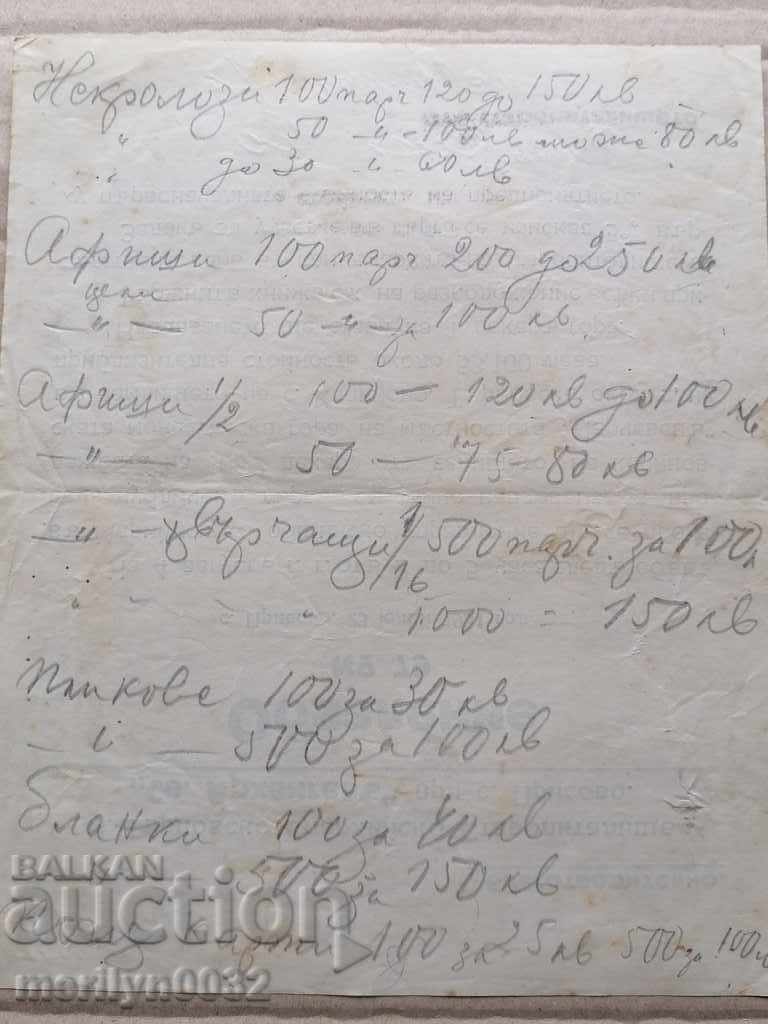 Некролози 100 парч 120 до 150 лв
" 50 -"- 100 лв може 80 лв
" до 30 " 60 лв
Афиши 100 парч 200 до 250 лв
цели
—"— 50 -"- за 100 лв.
Афиши 1/2 100 — 120 лв до 100 лв
—"— 50 — 75-80 лв
—"— хвърчащи 1/16 500 парч. за 100 л
" " " 1000 = 150 лв
Пликове 100 за 30 лв
—"— 500 за 100 лв
Бланки 100 за 40 лв
500 за 150 лв
карти 100 за 25 лв 500 за 100 л
BALKAN
auction
morilyn0032